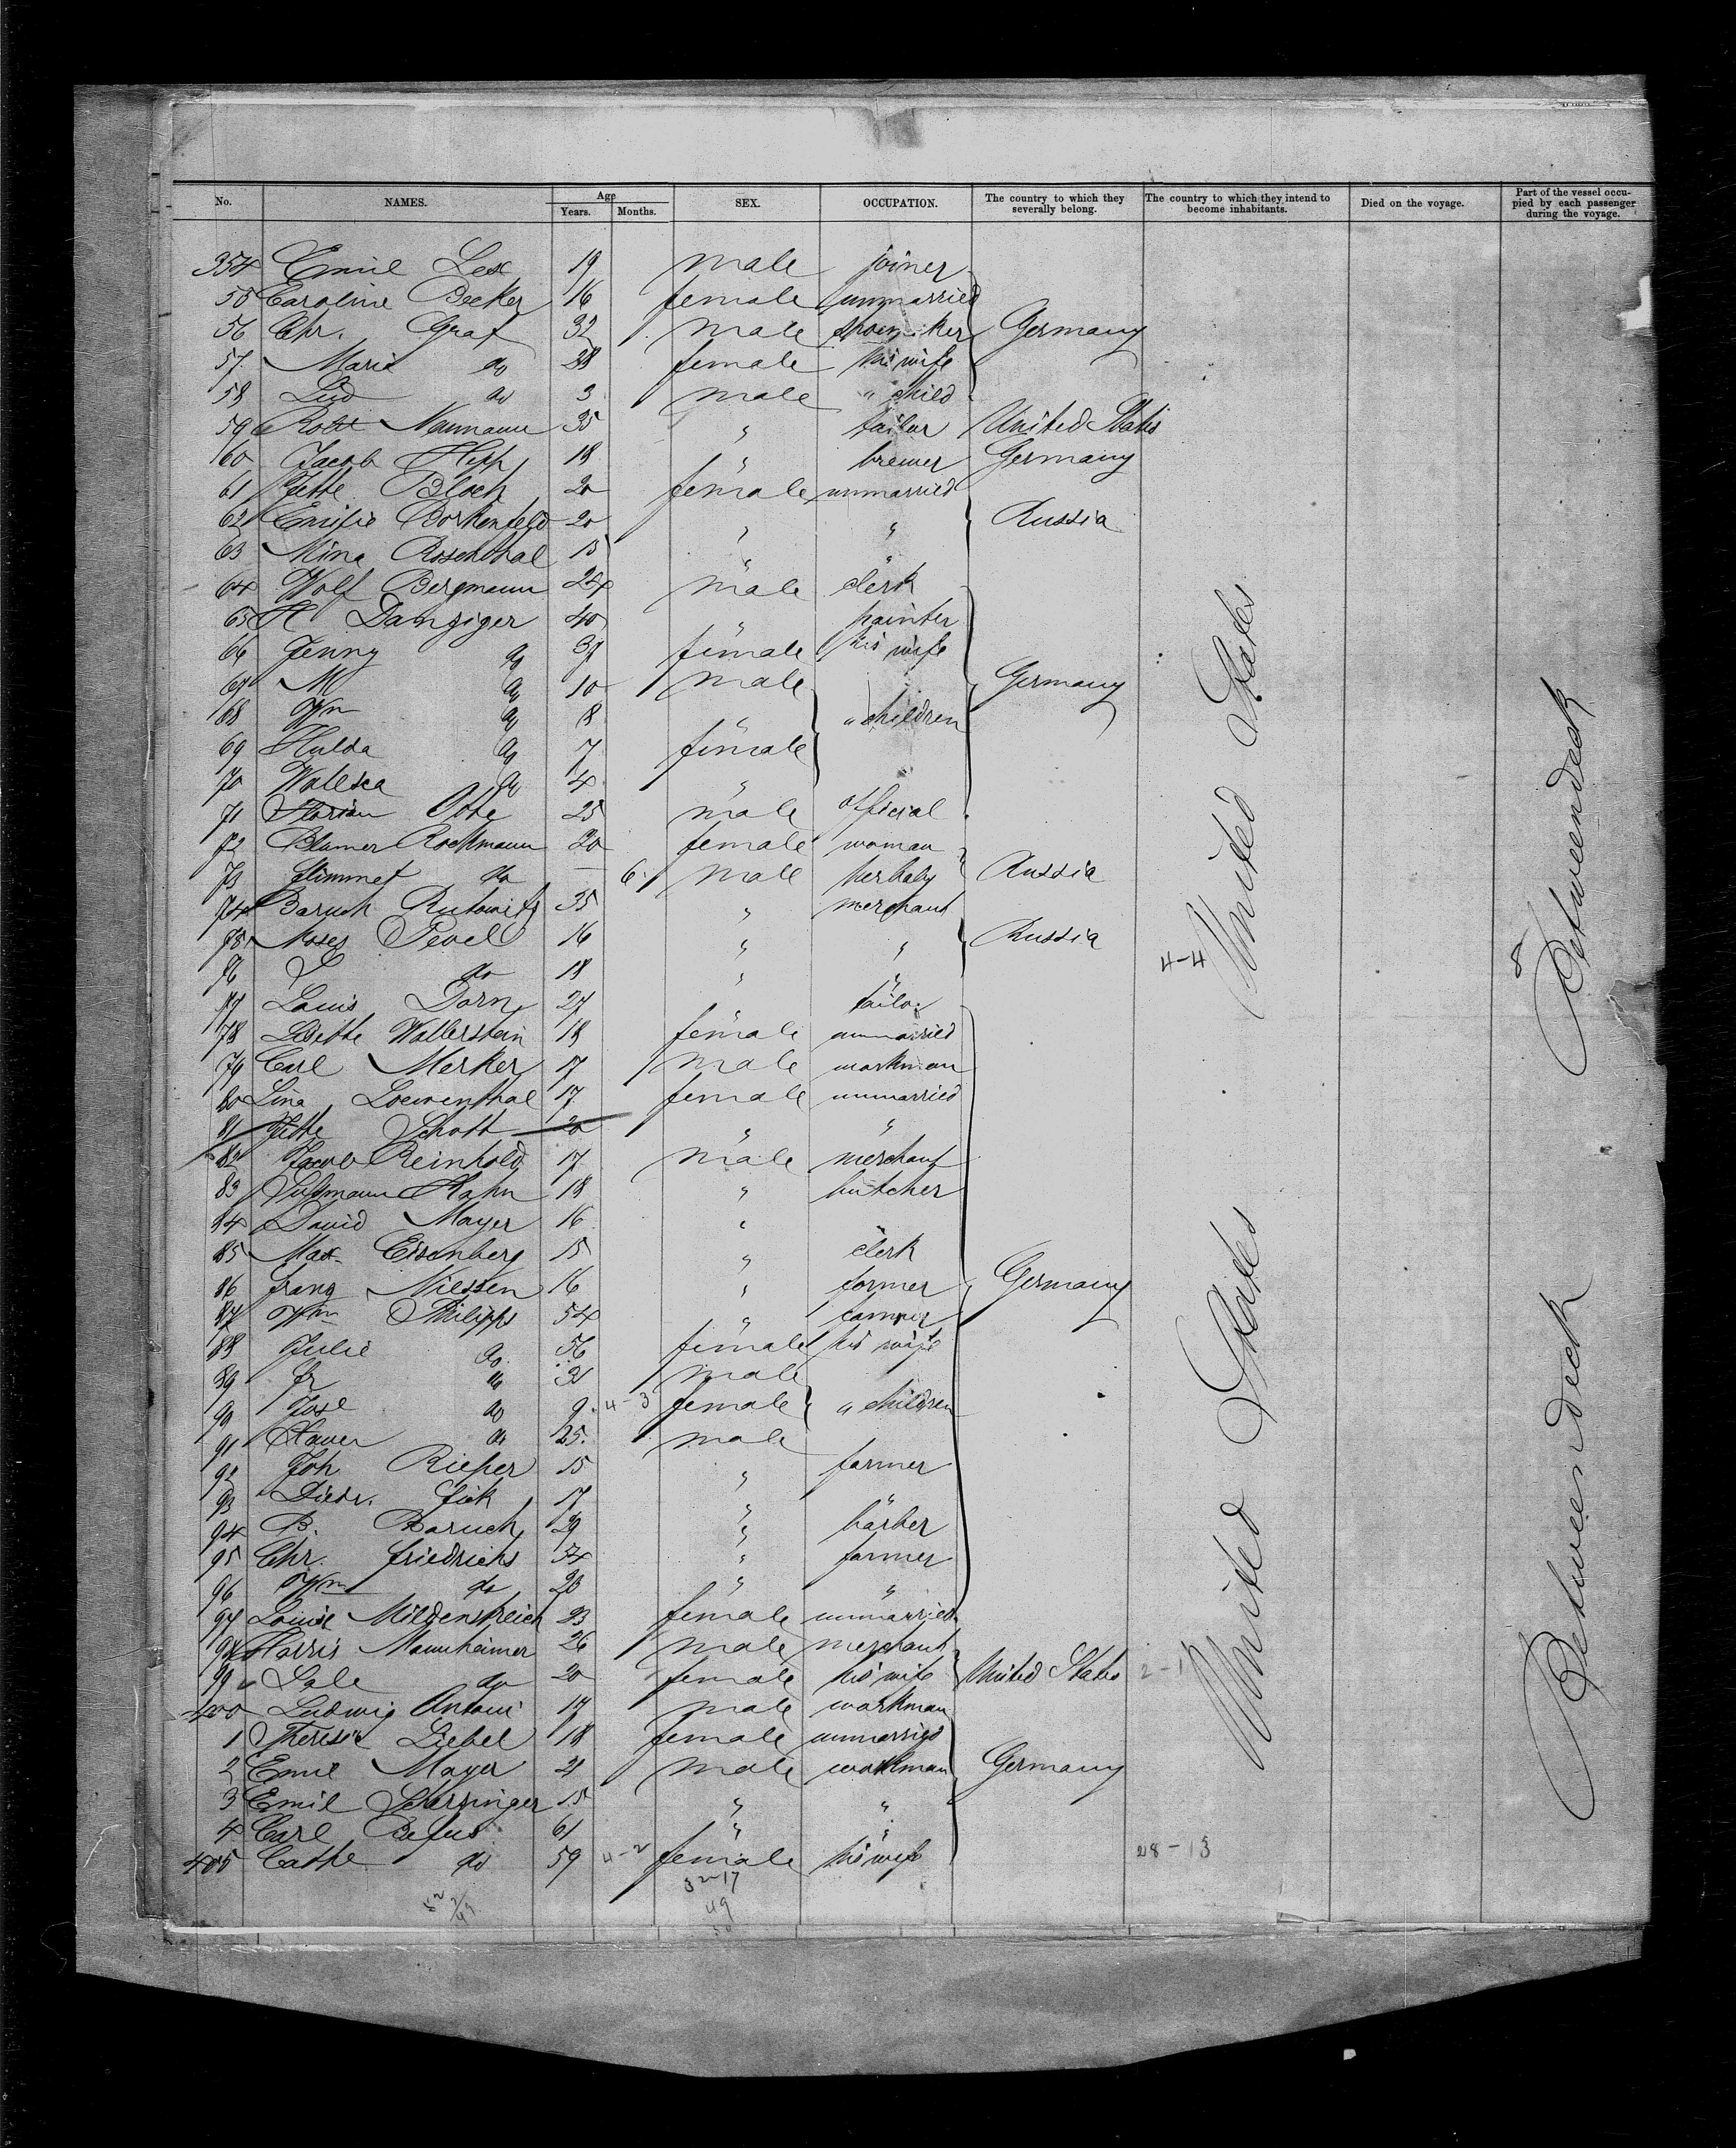 No. NAMES. Age Years. Months. SEX. OCCUPATION. The country to which they severally belong. The country to which they intend to become inhabitants. Died on the voyage. Part of the vessel occupied by each passenger during the voyage.
354 Emil Lex 19 male joiner
55 Caroline Becker 16 female unmarried
56 Chr. Graf 32 male Germany
57 Marie do 28 female his wife
58 Lud do 3 male " child
59 Robt Neumann 35 " tailor United States
60 Jacob Hipp 18 " brewer Germany
61 Jette Bloch 20 female unmarried
62 Emilie Borkenfeld 20 " " Russia
63 Mina Rosenthal 15 " "
64 Wolf Bergmann 24 male clerk
65 H Danziger 40 " painter
66 Jenny do 37 female his wife
67 M do 10 male Germany
68 Wm do 8 " " children
69 Hulda do 7 female
70 Wallesca do 4 "
71 Florian Otte 25 male official
72 Blumer Rochmann 20 female woman
73 do — 6 male her baby Russia
74 Baruch Rutowitz 35 " merchant
75 Moses 16 " " Russia
76 do 18 " " 4-4
77 Louis Dorn 27 " tailor
78 Lisette Wallerstein 18 female unmarried
79 Carl Merker 17 male workman
80 Lina Loewenthal 17 female unmarried
81 Jette Schott 20 " "
82 Jacob Reinhold 17 male merchant
83 Sussmann Hahn 18 " butcher
84 David Mayer 16 "
85 Max Eisenberg 15 " clerk
86 Franz Nielsen 16 " farmer Germany
87 Wm Philipps 54 " farmer
88 Julie do 56 female his wife
89 Fr do 21 male
90 Jose do 9 4-3 female " children
91 Xaver do 25 male
92 Joh Rieper 15 " farmer
93 Diedr. Fick 17 " "
94 B. Baruch 29 " barber
95 Chr. Friedrichs 54 " farmer
96 Wm do 20 " "
97 Louise Mildenstreich 23 female unmarried
98 Harris Mannheimer 26 male merchant
99 do 20 female his wife United States 2-1
400 Ludwig Antoni 17 male workman
1 Therese Liebel 18 female unmarried
2 Emil Mayer 21 male workman Germany
3 Emil 15 " "
4 Carl 61 " "
405 Cathe do 59 4-2 female his wife 28-13
32-17
49
United States
United States
Betweendeck
Between deck